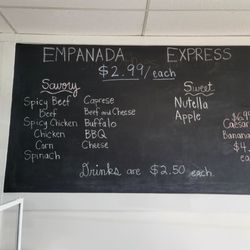 EMPANADA EXPRESS
$2.99/each
Savory
Spicy Beef
Beef
Spicy Chicken
Chicken
Corn
Spinach
Caprese
Beef and Cheese
Buffalo
BBQ
Cheese
Sweet
Nutella
Apple
$6.99
Caesar
Banana
$4.
ea
Drinks are $2.50 each.